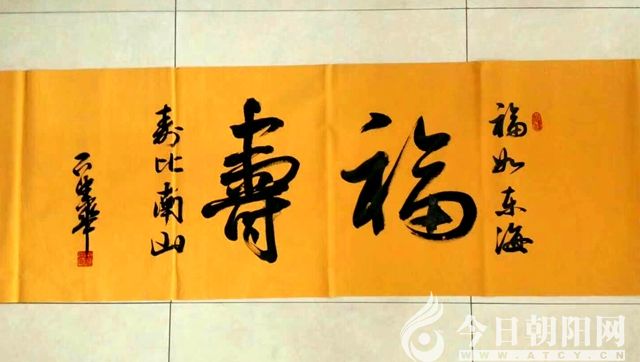 福如东海
福
壽
寿比南山
今日朝阳网
WWW.ATCY.CN